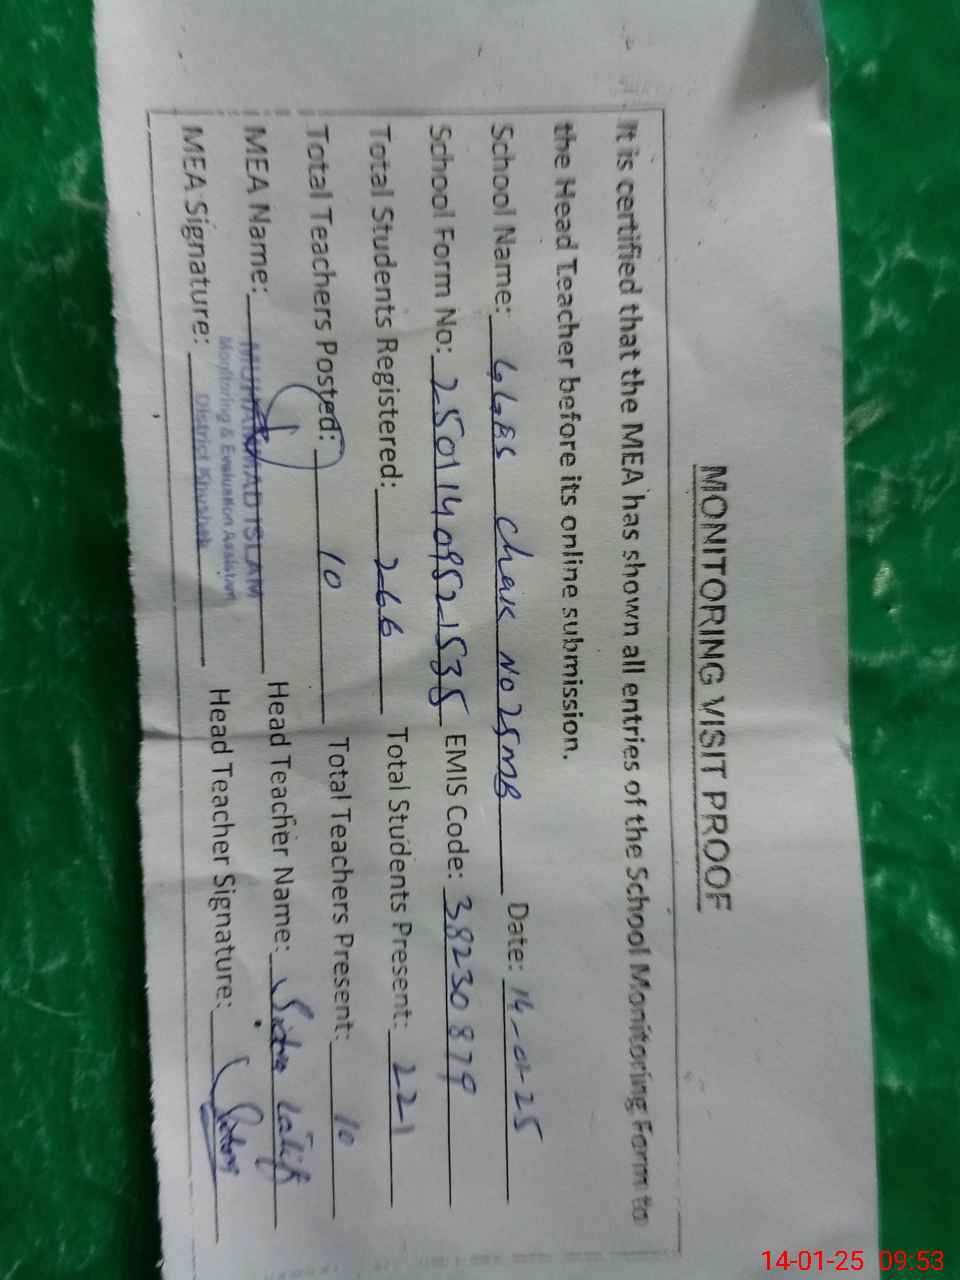 MONITORING VISIT PROOF
It is certified that the MEA has shown all entries of the School Monitoring Form to
the Head Teacher before its online submission.
School Name: GGES Chak No 25MB Date: 14-01-25
School Form No: 25011409521535 EMIS Code: 38230879
Total Students Registered: 266 Total Students Present: 221
Total Teachers Posted: 10 Total Teachers Present: 10
MEA Name: MUHAMMAD ISLAM Head Teacher Name: Sidra Latif
Monitoring & Evaluation Assistant
MEA Signature: District Khushab Head Teacher Signature:
14-01-25 09:53